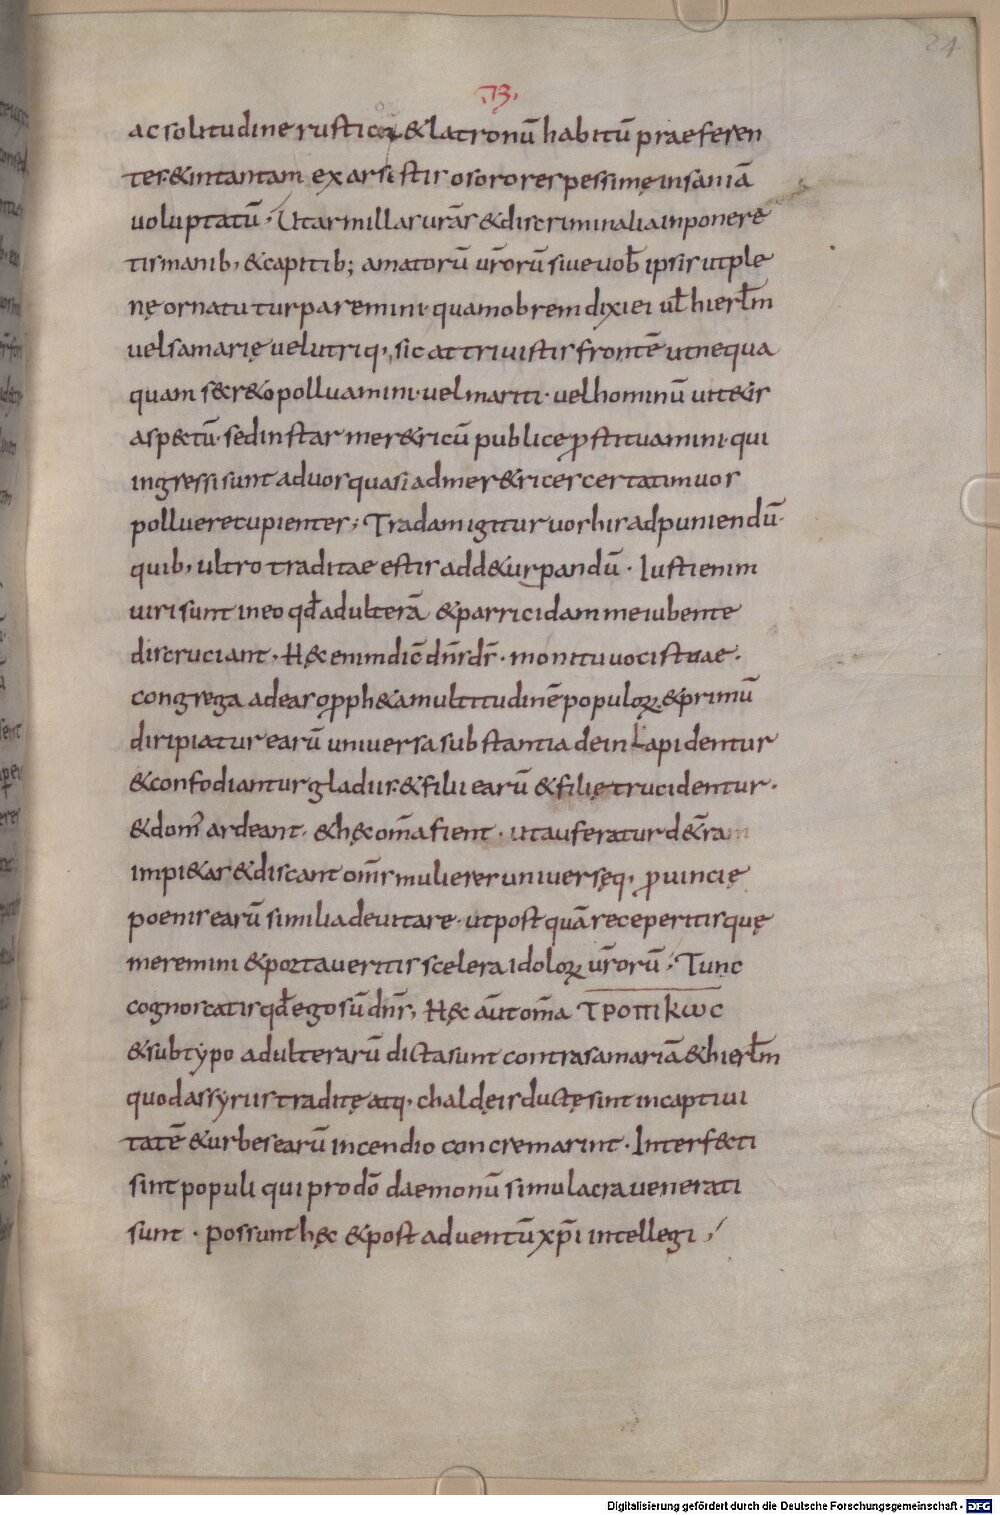 24
·73·
ac solitudine rusticoꝝ & latronū habitū praeferen
tes· & intantam exarsistis o sorores pessimę insaniā
voluptatū; Ut armillas urās & discriminalia inponere
tis manib; & capitib; amatorū ur̄orū siue uob̄ ipsis ut ple
nę ornatu turparemini· quamobrem dixi ei ul̄ hierl̄m
uel samarię uel utriq; sic attriuistis frontē ut nequa
quam secreto polluamini· uel mariti· uel hominū uitetis
aspectū· sed instar meretricū publice ꝓstituamini· qui
ingressi sunt ad uos quasi ad meretrices certatim uos
polluere cupientes; Tradam igitur uos his ad puniendū·
quib; ultro traditae estis ad deturpandū· Iusti enim
uiri sunt in eo qd̄ adulterā & parricidam me iubente
discruciant; Hęc enim dic̄ dn̄s ds̄· monitu uocis tuae·
congrega ad eas o ꝓpheta multitudinē populoꝝ & primū
diripiatur earū uniuersa substantia dein Lapidentur
& confodiantur gladiis· & filii earū & filię trucidentur·
& dom' ardeant· & hęc om̄a fient· ut auferatur de t̄ra
impietas & discant om̄s mulieres uniuersęq; ꝓuincię
poenis earū similia deuitare· ut post quā receperitis quę
meremini & portaueritis scelera idoloꝝ ur̄orū; Tunc
cognoscatis qd̄ ego sū dn̄s; Hęc aūt om̄a ΤΡΟΠΙΚωС
& sub typo adulterarū dicta sunt contra samariā & hierl̄m
quod assyriis traditę atq; chaldęis ductę sint in captiui
tatē & urbes earū incendio concremarint· Interfecti
sint populi qui pro dō daemonū simulacra uenerati
sunt· possunt hęc & post aduentū xp̄i intellegi;
Digitalisierung gefördert durch die Deutsche Forschungsgemeinschaft - DFG